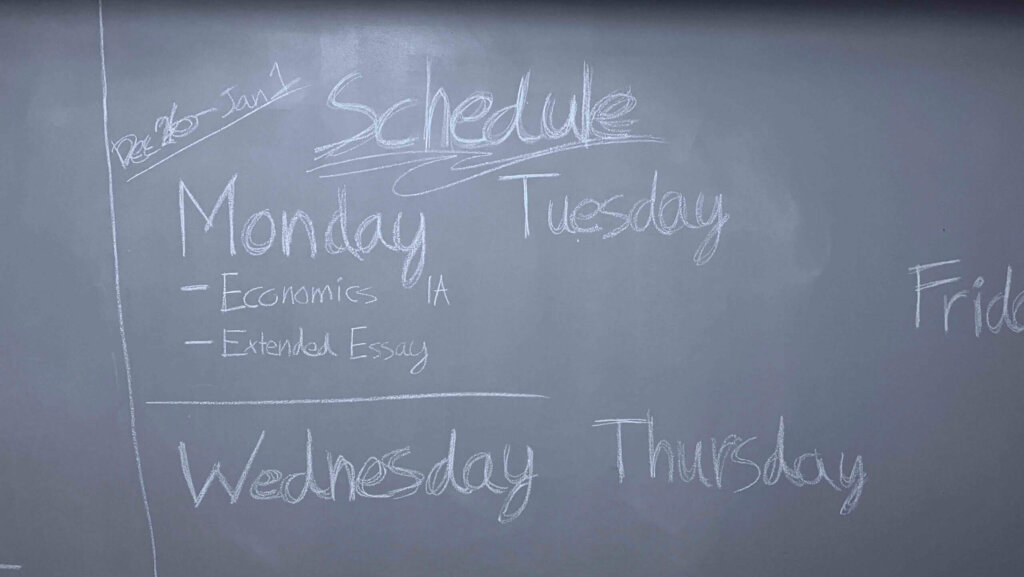 Dec 26 - Jan 1
Schedule
Monday Tuesday
- Economics IA
- Extended Essay
Frida
Wednesday Thursday